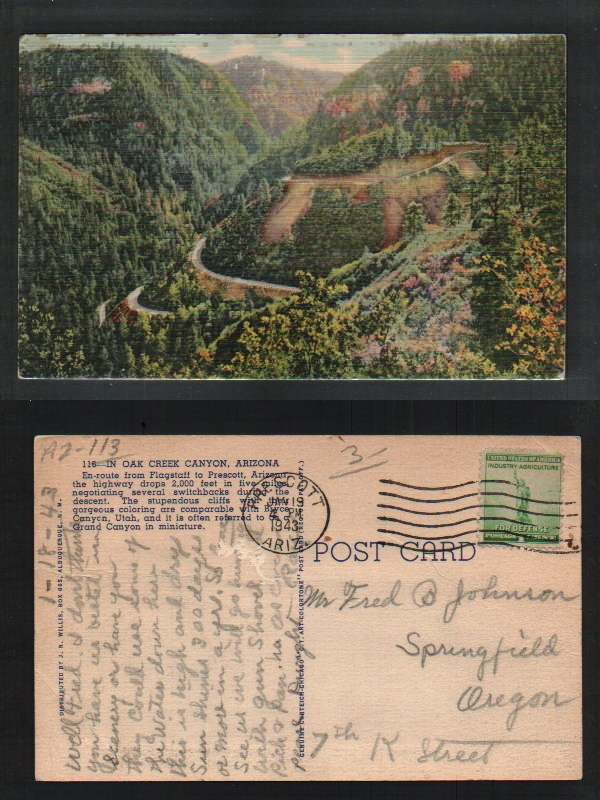 A2-113
3
116—IN OAK CREEK CANYON, ARIZONA
En-route from Flagstaff to Prescott, Arizona,
the highway drops 2,000 feet in five miles,
negotiating several switchbacks during the
descent. The stupendous cliffs with their
gorgeous coloring are comparable with Bryce
Canyon, Utah, and it is often referred to as
Grand Canyon in miniature.
PRESCOTT
JAN 19
PM
1943
ARIZ.
UNITED STATES OF AMERICA
INDUSTRY-AGRICULTURE
FOR DEFENSE
POST CARD
DISTRIBUTED BY J. R. WILLIS, BOX 665, ALBUQUERQUE, N. M.
GENUINE CURTEICH-CHICAGO "C.T. ART-COLORTONE" POST CARD (REG. U.S. PAT. OFF.)
1-18-43
Well Fred, I don't think
you have us beat in
Scenery or have you
they could use some of
the Water down here
this is high and dry
Sun shines 300 days
or more in a yr. So
See us we will go
with gun Shovel
Pick & Pan.
Mr Fred B Johnson
Springfield
Oregon
7th K Street